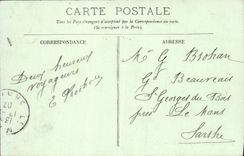 CARTE POSTALE
Tous les Pays étrangers n'acceptent pas la Correspondance au recto.
(Se renseigner à la Poste)
CORRESPONDANCE
ADRESSE
Deux heureux
voyageurs
E
Mr G Brohan
Gd Beauvais
St Georges du Bois
près Le Mans
Sarthe